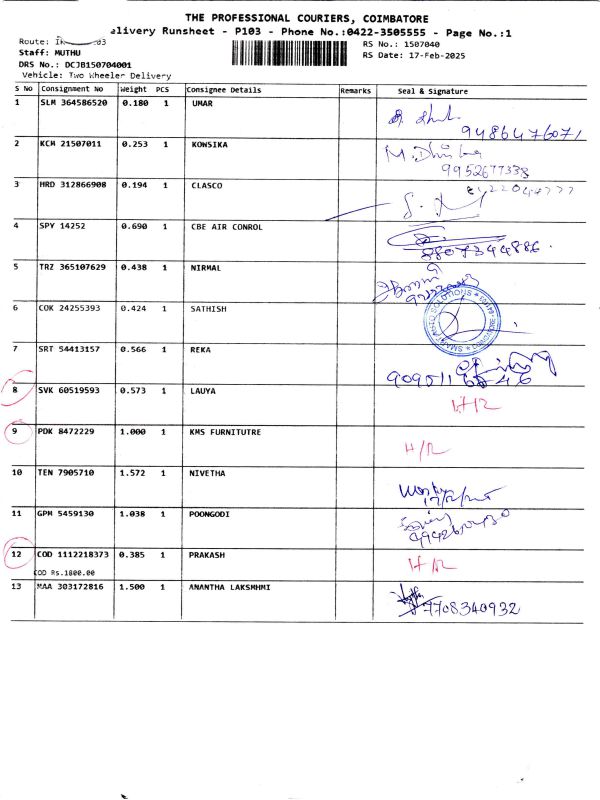 THE PROFESSIONAL COURIERS, COIMBATORE
elivery Runsheet - P103 - Phone No.:0422-3505555 - Page No.:1
Route:
RS No.: 1507040
Staff: MUTHU
RS Date: 17-Feb-2025
DRS No.: DCJB150704001
Vehicle: Two Wheeler Delivery
S No Consignment No Weight PCS Consignee Details Remarks Seal & Signature
1 SLM 364586520 0.180 1 UMAR
9486476071
2 KCM 21507011 0.253 1 KOWSIKA
M. Dhi
9952677338
3 HRD 312866908 0.194 1 CLASCO
4 SPY 14252 0.690 1 CBE AIR CONROL
8807344886.
5 TRZ 365107629 0.438 1 NIRMAL
6 COK 24255393 0.424 1 SATHISH
SMART AUTO SOLUTIONS
7 SRT 54413157 0.566 1 REKA
8 SVK 60519593 0.573 1 LAUYA H/R
9 PDK 8472229 1.000 1 KMS FURNITUTRE H/R
10 TEN 7905710 1.572 1 NIVETHA
17/2/25
11 GPM 5459130 1.038 1 POONGODI
12 COD 1112218373 0.385 1 PRAKASH H/R
COD Rs.1800.00
13 MAA 303172816 1.500 1 ANANTHA LAKSMHMI
7708340932